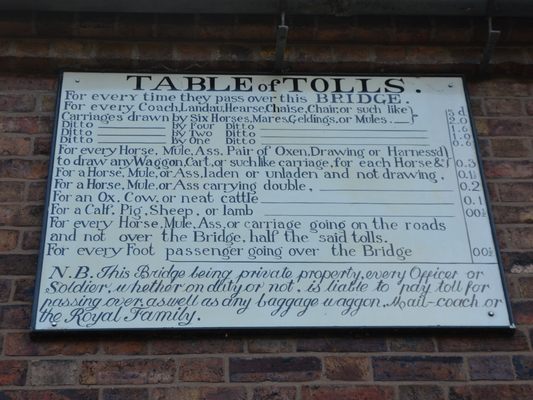 TABLE of TOLLS.
For every time they pass over this BRIDGE.
For every Coach, Landau, Hearse, Chaise, Chair, or such like
Carriages drawn by Six Horses, Mares, Geldings, or Mules. 2.0
Ditto by Four Ditto 1.6
Ditto by Two Ditto 1.0
Ditto by One Ditto 0.6
For every Horse, Mule, Ass, Pair of Oxen, Drawing or Harness'd
to draw any Waggon, Cart, or such like carriage, for each Horse &c 0.3
For a Horse, Mule, or Ass, laden or unladen and not drawing,
For a Horse, Mule, or Ass carrying double, 0.2
For an Ox, Cow, or neat cattle 0.1
For a Calf, Pig, Sheep, or lamb 00½
For every Horse, Mule, Ass, or carriage going on the roads
and not over the Bridge, half the said tolls.
For every Foot passenger going over the Bridge 00½
N.B. This Bridge being private property, every Officer or
Soldier, whether on duty or not, is liable to pay toll for
passing over, as well as any baggage waggon, Mail-coach or
the Royal Family.